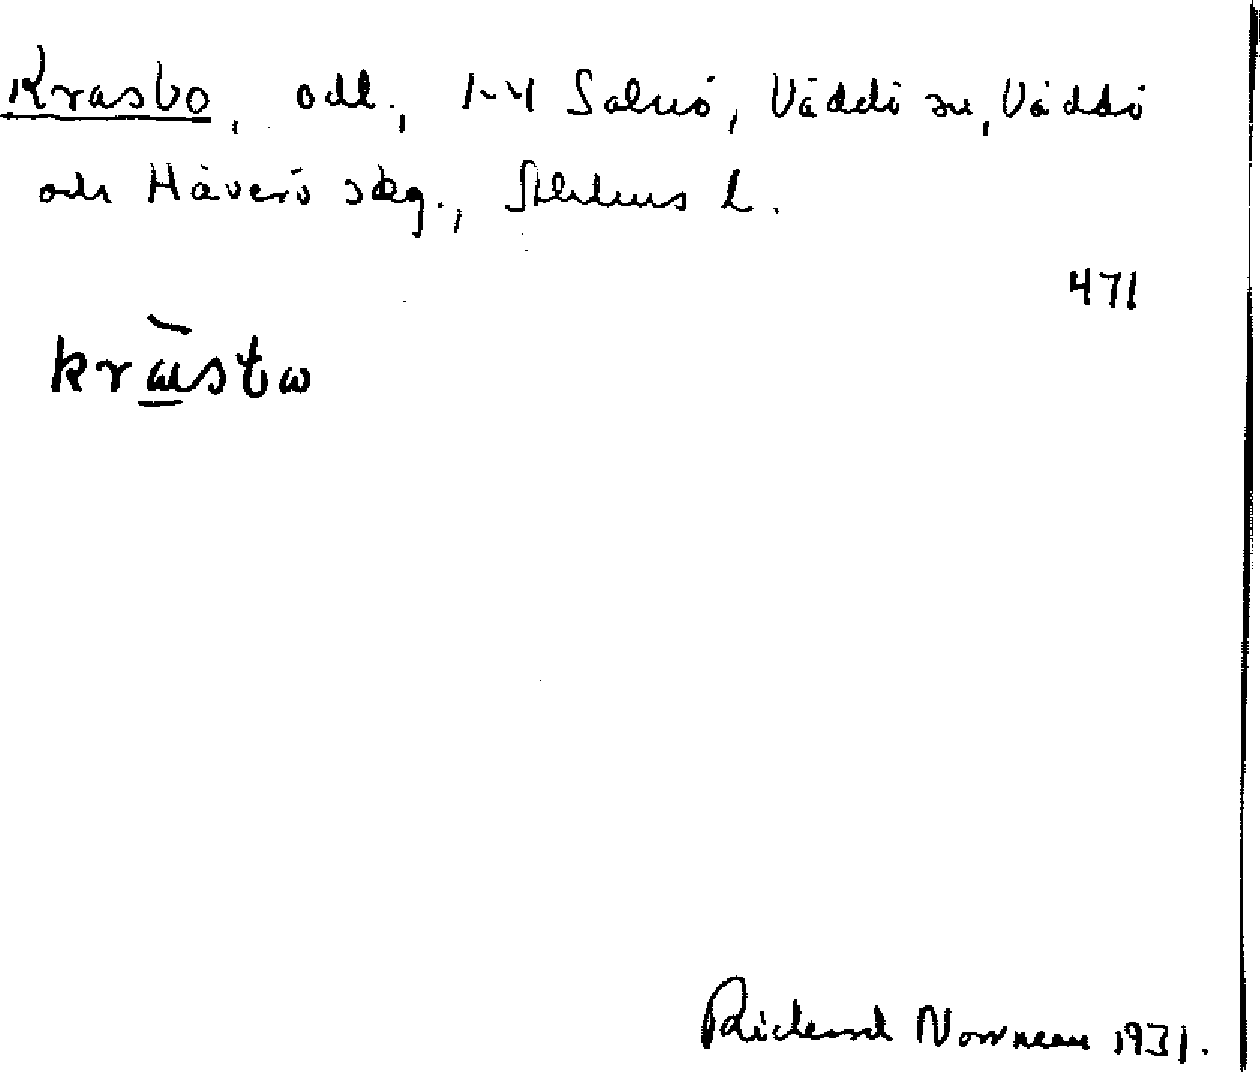 Krasbo, odl., 1-4 Salnö, Väddö sn, Väddö
och Häverö skg., Sthlms l.
471
kràsbω
Rickard Norrman 1931.